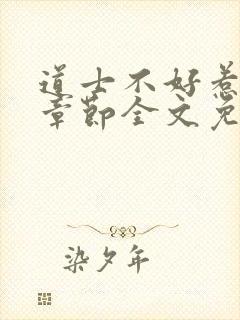 道士不好惹
章节全文免
染夕年